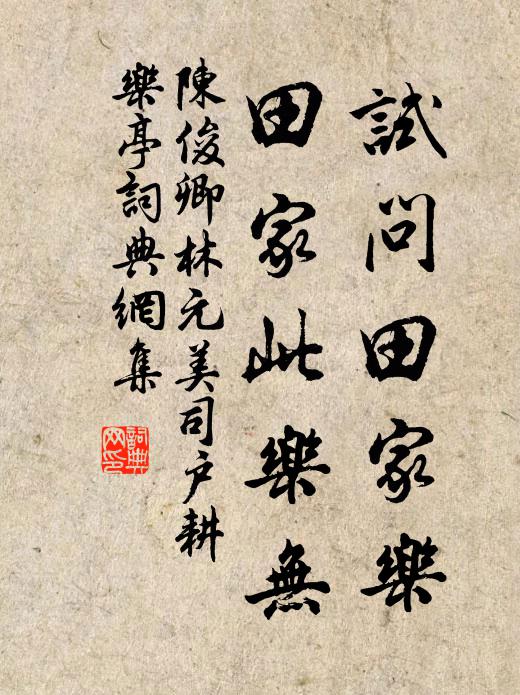 試問田家樂
田家此樂無
陳俊卿林元美司戶耕
樂亭詞典網集
詞典
网印